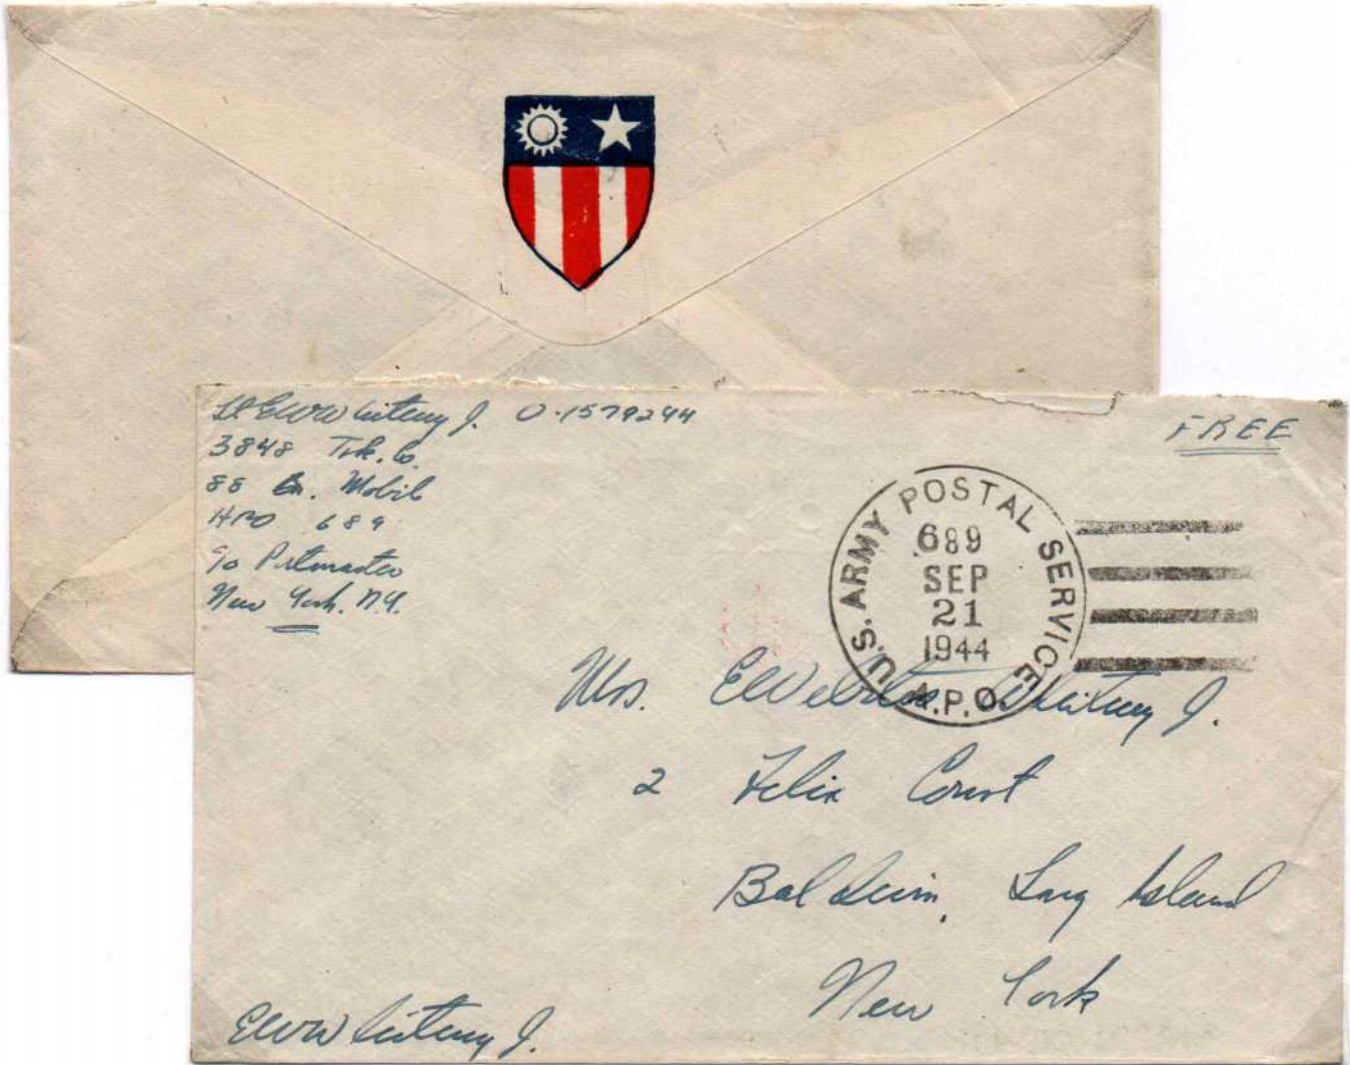 Lt EWWhitney Jr. O-1579244
3848 Trk. Co.
88 Bn. Mobil
APO 689
c/o Postmaster
New York. N.Y.
FREE
U.S. ARMY POSTAL SERVICE
689
SEP
21
1944
A.P.O.
Mrs. Whitney Jr.
2 Felix Court
Baldwin, Long Island
New York
EWWhitney Jr.